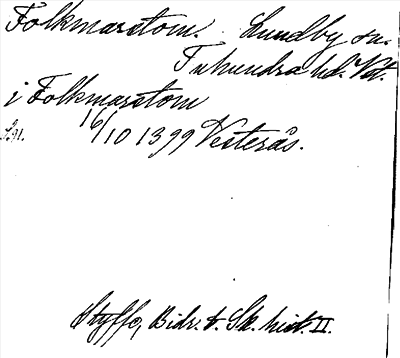 Folkmarstom. Lundby sn.
Tuhundra hd. Vst.
i Folkmarstom
16/10 1399 Vesterås.
Styffe, Bidr. t. Sk. hist. II.